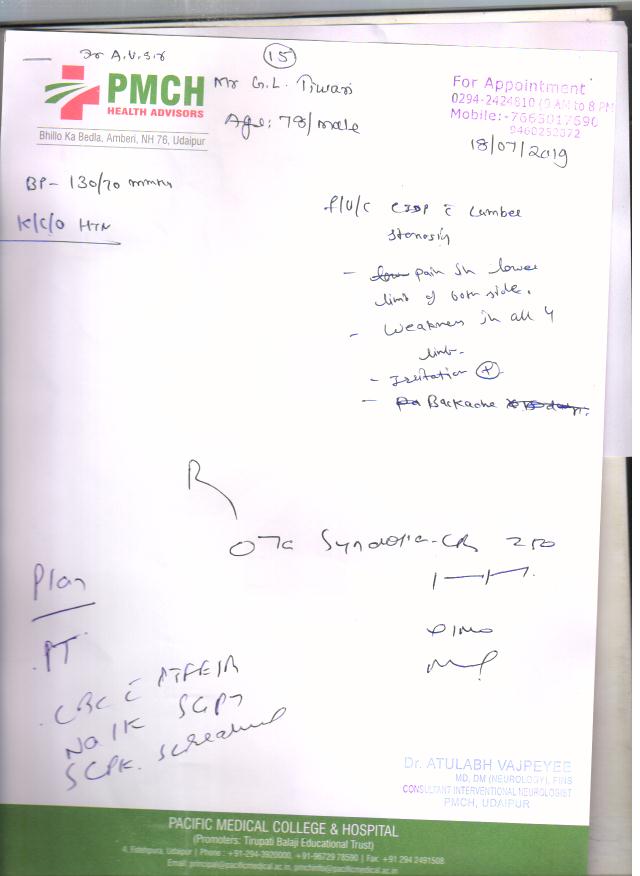 Dr A.V. Sir
15
PMCH
HEALTH ADVISORS
Bhillo Ka Bedla, Amberi, NH 76, Udaipur
Mr G.L. Tiwari
Age: 78/male
For Appointment
0294-2424810 (9 AM to 8 PM
Mobile:-7665017690
9460252372
18/07/2019
BP- 130/70 mmHg
K/C/O HTN
f/u/c CIDP c Lumber
stenosis
- pain in lower
limb of both side.
- Weakness in all 4
limb.
- Irritation +
- Backache
R
CR 250
1-1-1
Plan
. PT
. CBC c
Na/K SGPT
S.CPK. S.creatinine
Dr. ATULABH VAJPEYEE
MD, DM (NEUROLOGY), FINS
CONSULTANT INTERVENTIONAL NEUROLOGIST
PMCH, UDAIPUR
PACIFIC MEDICAL COLLEGE & HOSPITAL
(Promoters: Tirupati Balaji Educational Trust)
Udaipur | Phone : +91-294-3920000, +91-96729 78590 | Fax: +91 294 2491508
Email: principal@pacificmedical.ac.in, pmchinfo@pacificmedical.ac.in